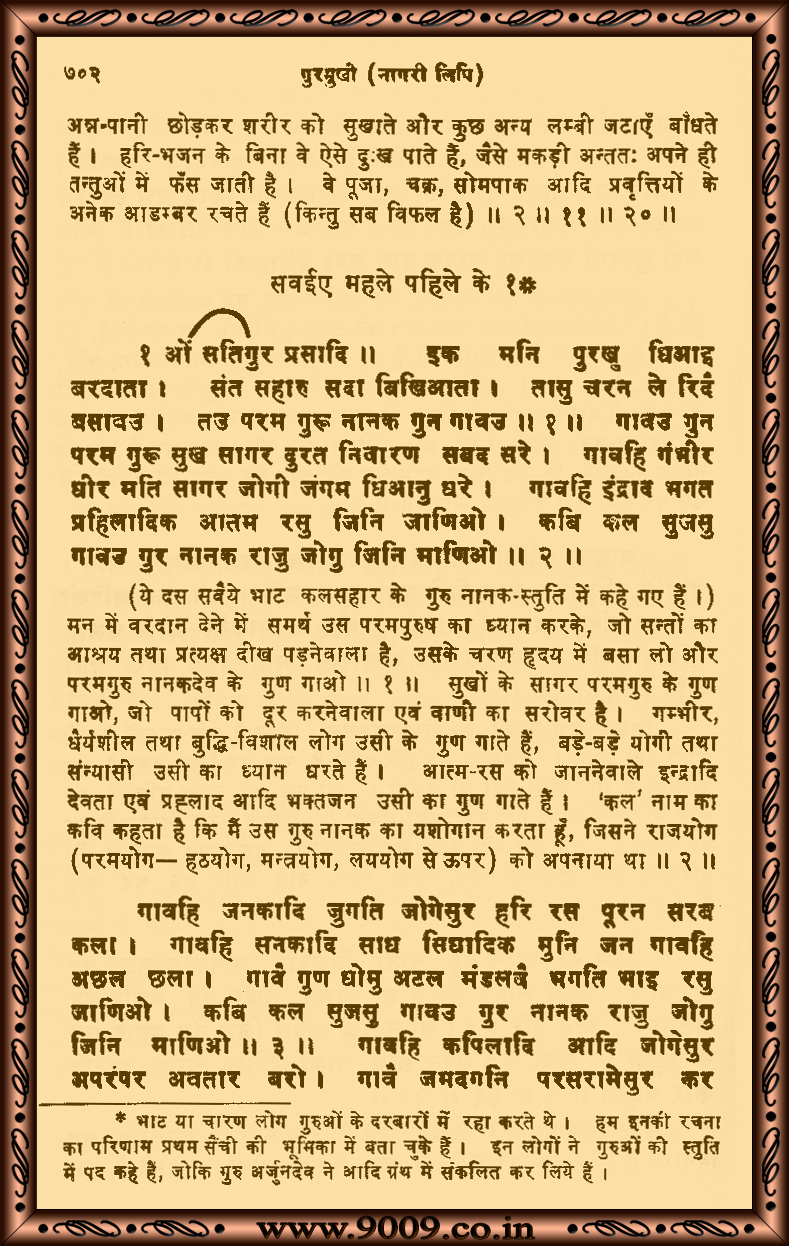 ७०२ गुरमुखी (नागरी लिपि)
अन्न-पानी छोड़कर शरीर को सुखाते और कुछ अन्य लम्बी जटाएँ बाँधते
हैं । हरि-भजन के बिना वे ऐसे दुःख पाते हैं, जैसे मकड़ी अन्ततः अपने ही
तन्तुओं में फँस जाती है । वे पूजा, चक्र, सोमपाक आदि प्रवृत्तियों के
अनेक आडम्बर रचते हैं (किन्तु सब विफल है) ॥ २ ॥ ११ ॥ २० ॥
सवईए महले पहिले के १*
१ ओं सतिगुर प्रसादि ॥ इक मनि पुरखु धिआइ
बरदाता । संत सहारु सदा बिखिआता । तासु चरन ले रिदै
बसावउ । तउ परम गुरू नानक गुन गावउ ॥ १ ॥ गावउ गुन
परम गुरू सुख सागर दुरत निवारण सबद सरे । गावहि गंभीर
धीर मति सागर जोगी जंगम धिआनु धरे । गावहि इंद्रादि भगत
प्रहिलादिक आतम रसु जिनि जाणिओ । कबि कल सुजसु
गावउ गुर नानक राजु जोगु जिनि माणिओ ॥ २ ॥
(ये दस सवैये भाट कलसहार के गुरु नानक-स्तुति में कहे गए हैं ।)
मन में वरदान देने में समर्थ उस परमपुरुष का ध्यान करके, जो सन्तों का
आश्रय तथा प्रत्यक्ष दीख पड़नेवाला है, उसके चरण हृदय में बसा लो और
परमगुरु नानकदेव के गुण गाओ ॥ १ ॥ सुखों के सागर परमगुरु के गुण
गाओ, जो पापों को दूर करनेवाला एवं वाणी का सरोवर है । गम्भीर,
धैर्यशील तथा बुद्धि-विशाल लोग उसी के गुण गाते हैं, बड़े-बड़े योगी तथा
संन्यासी उसी का ध्यान धरते हैं । आत्म-रस को जाननेवाले इन्द्रादि
देवता एवं प्रह्लाद आदि भक्तजन उसी का गुण गाते हैं । ‘कल’ नाम का
कवि कहता है कि मैं उस गुरु नानक का यशोगान करता हूँ, जिसने राजयोग
(परमयोग— हठयोग, मन्त्रयोग, लययोग से ऊपर) को अपनाया था ॥ २ ॥
गावहि जनकादि जुगति जोगेसुर हरि रस पूरन सरब
कला । गावहि सनकादि साध सिधादिक मुनि जन गावहि
अछल छला । गावै गुण धोमु अटल मंडलवै भगति भाइ रसु
जाणिओ । कबि कल सुजसु गावउ गुर नानक राजु जोगु
जिनि माणिओ ॥ ३ ॥ गावहि कपिलादि आदि जोगेसुर
अपरंपर अवतार बरो । गावै जमदगनि परसरामेसुर कर
* भाट या चारण लोग गुरुओं के दरबारों में रहा करते थे । हम इनकी रचना
का परिणाम प्रथम सैंची की भूमिका में बता चुके हैं । इन लोगों ने गुरुओं की स्तुति
में पद कहे हैं, जोकि गुरु अर्जुनदेव ने आदि ग्रंथ में संकलित कर लिये हैं ।
www.9009.co.in